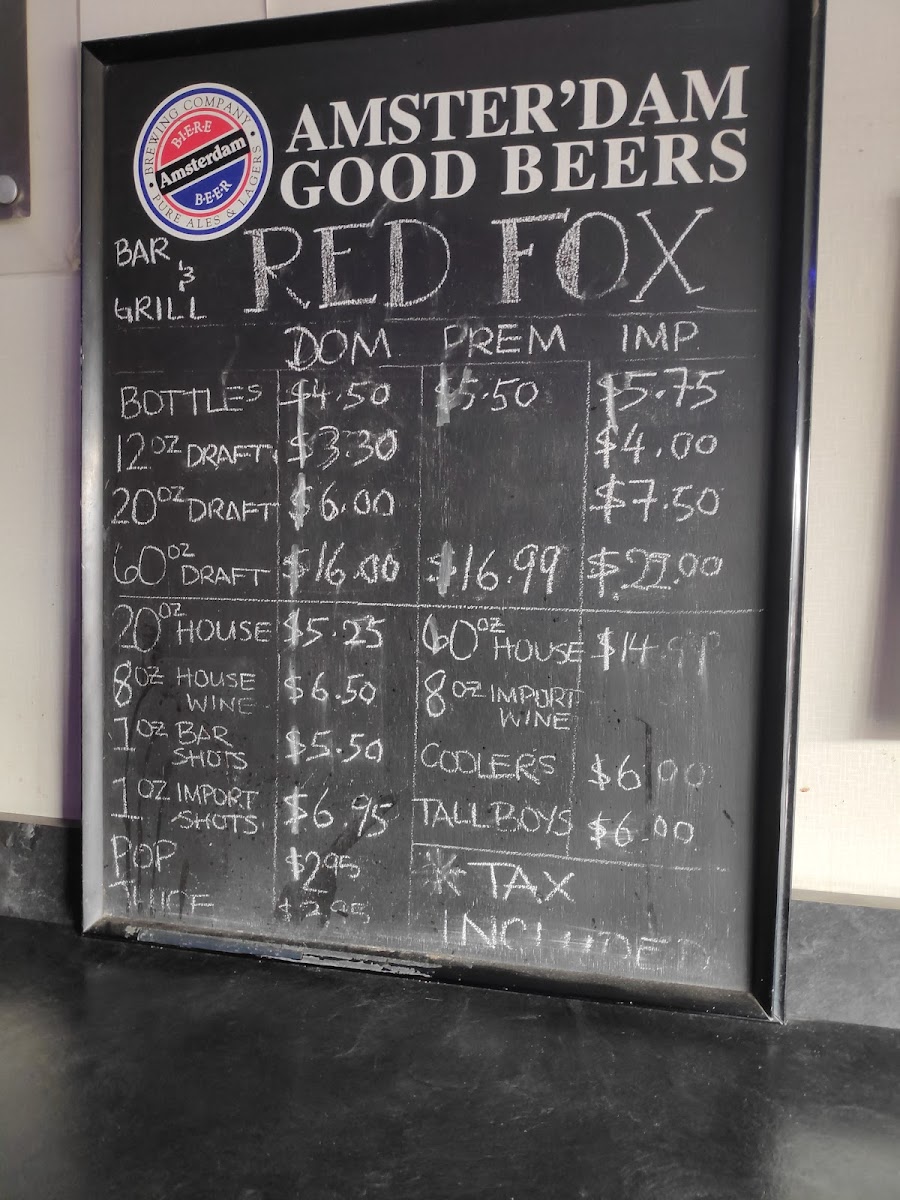 BREWING COMPANY
BIERE
Amsterdam
BEER
PURE ALES & LAGERS
AMSTER'DAM
GOOD BEERS
BAR & GRILL
RED FOX
DOM PREM IMP
BOTTLES $4.50 $5.50 $5.75
12OZ DRAFT $3.30 $4.00
20OZ DRAFT $6.00 $7.50
60OZ DRAFT $16.00 $16.99 $22.00
20OZ HOUSE $5.25 60OZ HOUSE $14.99
8OZ HOUSE WINE $6.50 8OZ IMPORT WINE
1OZ BAR SHOTS $5.50 COOLERS $6.00
1OZ IMPORT SHOTS $6.95 TALL BOYS $6.00
POP $2.95
JUICE $2.95
* TAX
INCLUDED